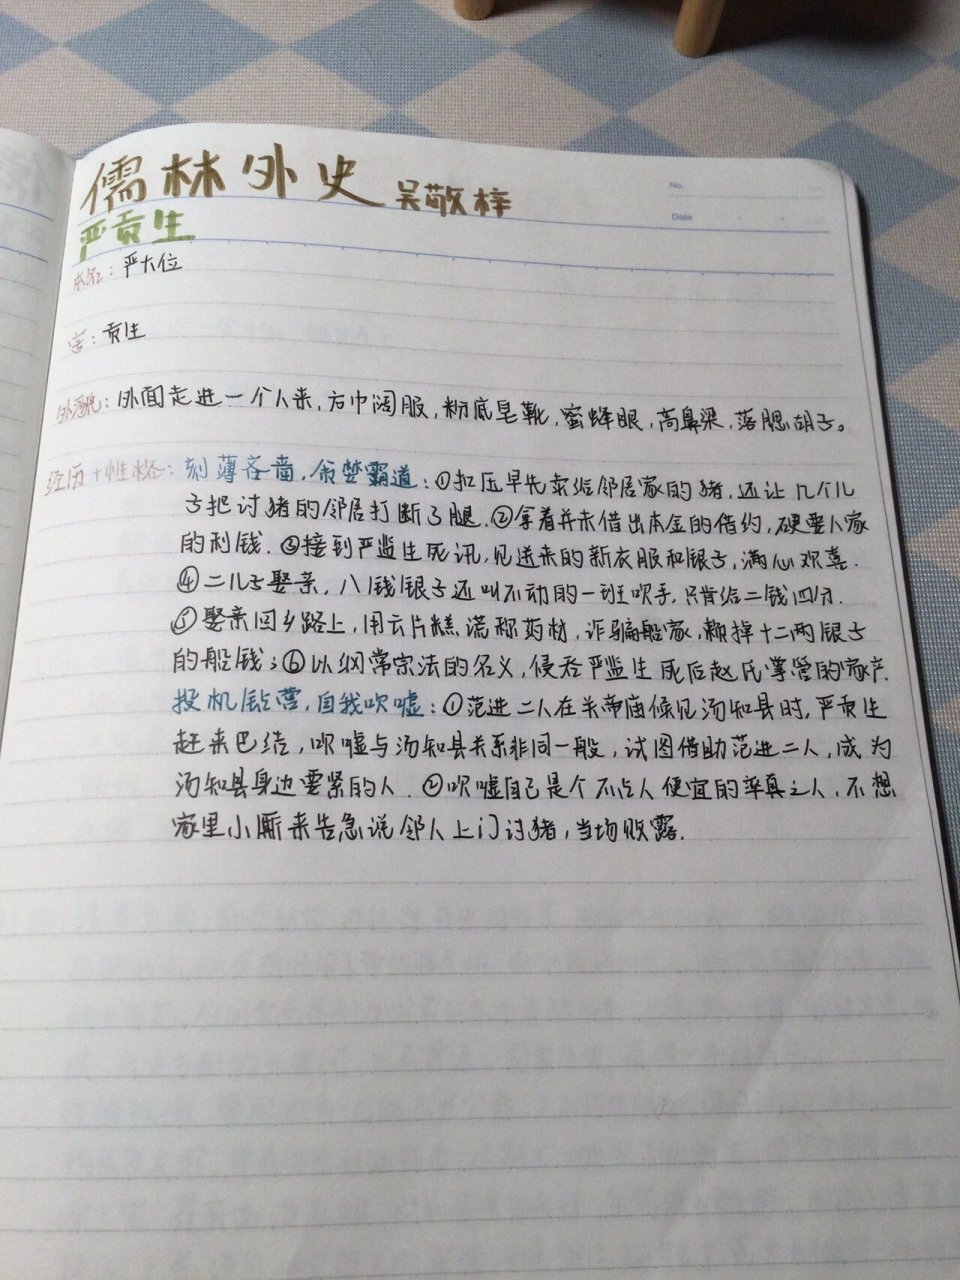 儒林外史 吴敬梓
No.
Date
严贡生
本名：严大位
字：贡生
外貌：外面走进一个人来，方巾阔服，粉底皂靴，蜜蜂眼，高鼻梁，落腮胡子。
经历+性格：刻薄吝啬，贪婪霸道：①扣压早先卖给邻居家的猪，还让几个儿
子把讨猪的邻居打断了腿．②拿着并未借出本金的借约，硬要人家
的利钱．③接到严监生死讯，见送来的新衣服和银子，满心欢喜．
④二儿子娶亲，八钱银子还叫不动的一班吹手，只肯给二钱四分．
⑤娶亲回乡路上，用云片糕谎称药材，诈骗船家，赖掉十二两银子
的船钱；⑥以纲常宗法的名义，侵吞严监生死后赵氏掌管的家产．
投机钻营，自我吹嘘：①范进二人在关帝庙候见汤知县时，严贡生
赶来巴结，吹嘘与汤知县关系非同一般，试图借助范进二人，成为
汤知县身边要紧的人．②吹嘘自己是个不占人便宜的率真之人，不想
家里小厮来告急说邻人上门讨猪，当场败露．